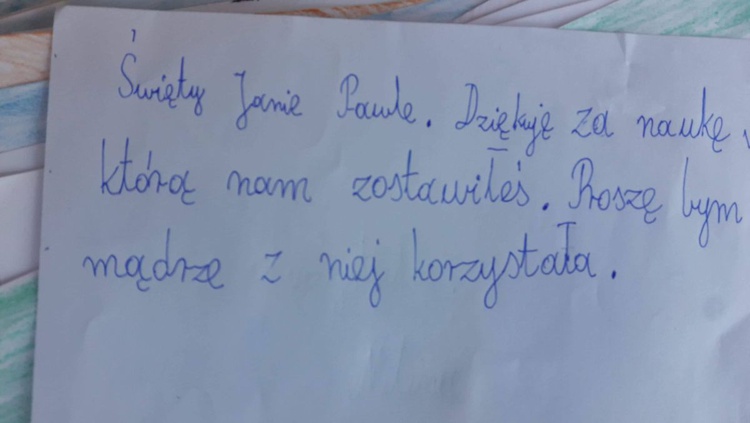 Święty Janie Pawle. Dziękuję za naukę,
którą nam zostawiłeś. Proszę bym
mądrze z niej korzystała.